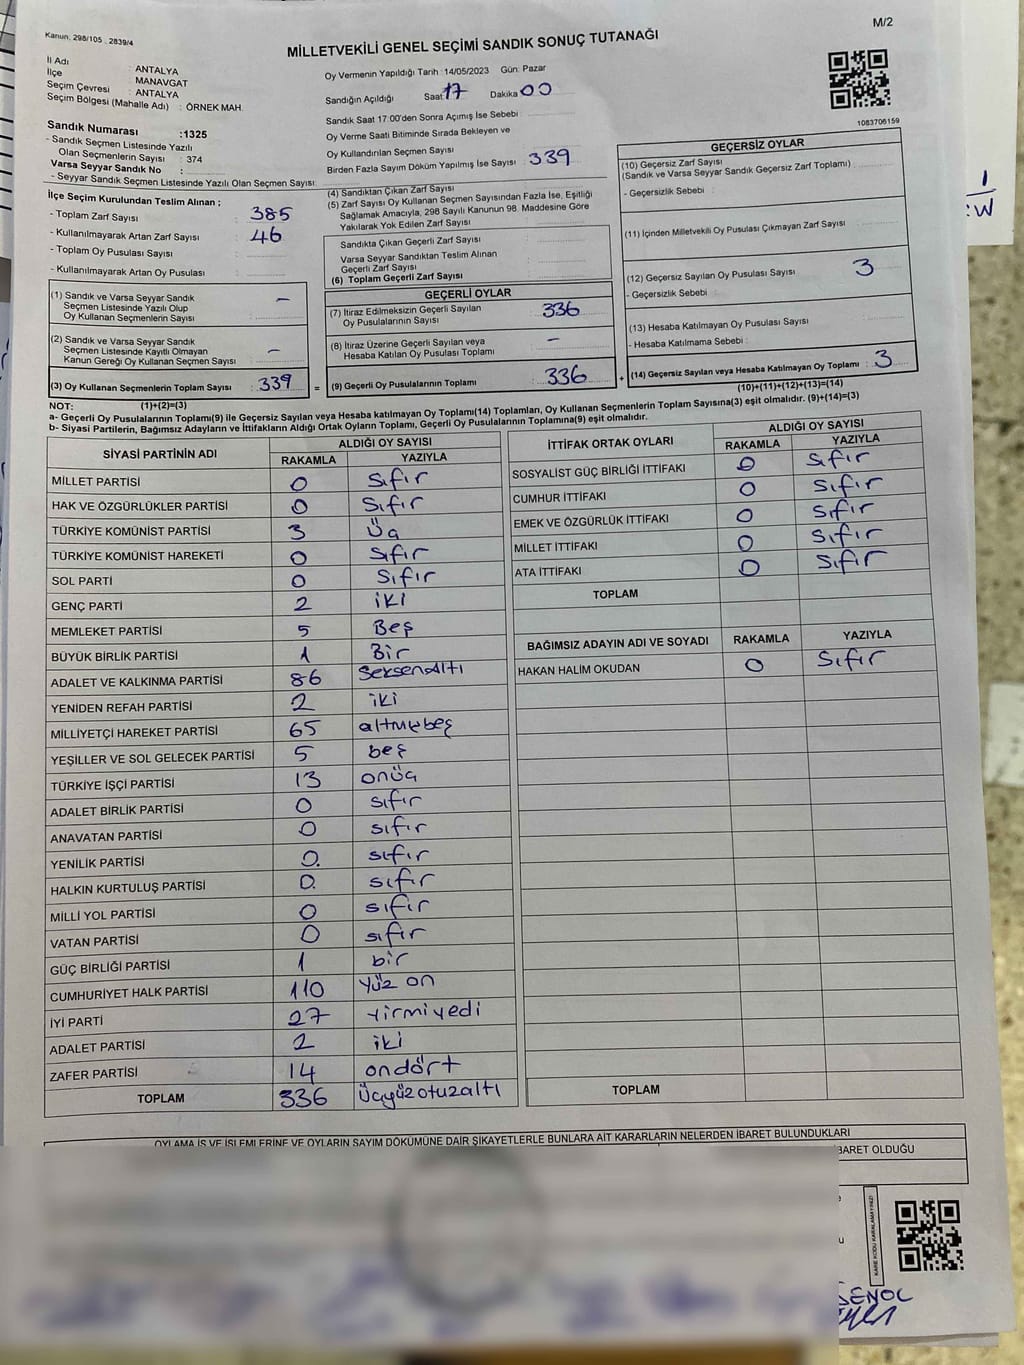 Kanun: 298/105 . 2839/4
M/2
MİLLETVEKİLİ GENEL SEÇİMİ SANDIK SONUÇ TUTANAĞI
İl Adı : ANTALYA
İlçe : MANAVGAT
Seçim Çevresi : ANTALYA
Seçim Bölgesi (Mahalle Adı) : ÖRNEK MAH.
Sandık Numarası :1325
- Sandık Seçmen Listesinde Yazılı
Olan Seçmenlerin Sayısı : 374
Varsa Seyyar Sandık No :
- Seyyar Sandık Seçmen Listesinde Yazılı Olan Seçmen Sayısı:
Oy Vermenin Yapıldığı Tarih :14/05/2023 Gün: Pazar
Sandığın Açıldığı Saat 17 Dakika 00
Sandık Saat 17:00'den Sonra Açımış İse Sebebi :
Oy Verme Saati Bitiminde Sırada Bekleyen ve
Oy Kullandırılan Seçmen Sayısı
Birden Fazla Sayım Döküm Yapılmış İse Sayısı 339
1083706159
İlçe Seçim Kurulundan Teslim Alınan ;
- Toplam Zarf Sayısı : 385
- Kullanılmayarak Artan Zarf Sayısı : 46
- Toplam Oy Pusulası Sayısı :
- Kullanılmayarak Artan Oy Pusulası :
(1) Sandık ve Varsa Seyyar Sandık
Seçmen Listesinde Yazılı Olup
Oy Kullanan Seçmenlerin Sayısı : –
(2) Sandık ve Varsa Seyyar Sandık
Seçmen Listesinde Kayıtlı Olmayan
Kanun Gereği Oy Kullanan Seçmen Sayısı : –
(3) Oy Kullanan Seçmenlerin Toplam Sayısı : 339 =
(1)+(2)=(3)
(4) Sandıktan Çıkan Zarf Sayısı
(5) Zarf Sayısı Oy Kullanan Seçmen Sayısından Fazla İse, Eşitliği
Sağlamak Amacıyla, 298 Sayılı Kanunun 98. Maddesine Göre
Yakılarak Yok Edilen Zarf Sayısı
Sandıkta Çıkan Geçerli Zarf Sayısı
Varsa Seyyar Sandıktan Teslim Alınan
Geçerli Zarf Sayısı
(6) Toplam Geçerli Zarf Sayısı
GEÇERLİ OYLAR
(7) İtiraz Edilmeksizin Geçerli Sayılan
Oy Pusulalarının Sayısı : 336
(8) İtiraz Üzerine Geçerli Sayılan veya
Hesaba Katılan Oy Pusulası Toplamı : –
(9) Geçerli Oy Pusulalarının Toplamı : 336 +
GEÇERSİZ OYLAR
(10) Geçersiz Zarf Sayısı
(Sandık ve Varsa Seyyar Sandık Geçersiz Zarf Toplamı)
- Geçersizlik Sebebi :
(11) İçinden Milletvekili Oy Pusulası Çıkmayan Zarf Sayısı
(12) Geçersiz Sayılan Oy Pusulası Sayısı 3
- Geçersizlik Sebebi :
(13) Hesaba Katılmayan Oy Pusulası Sayısı
- Hesaba Katılmama Sebebi :
(14) Geçersiz Sayılan veya Hesaba Katılmayan Oy Toplamı : 3
(10)+(11)+(12)+(13)=(14)
NOT:
a- Geçerli Oy Pusulalarının Toplamı(9) ile Geçersiz Sayılan veya Hesaba katılmayan Oy Toplamı(14) Toplamları, Oy Kullanan Seçmenlerin Toplam Sayısına(3) eşit olmalıdır. (9)+(14)=(3)
b- Siyasi Partilerin, Bağımsız Adayların ve İttifakların Aldığı Ortak Oyların Toplamı, Geçerli Oy Pusulalarının Toplamına(9) eşit olmalıdır.
SİYASİ PARTİNİN ADI ALDIĞI OY SAYISI
RAKAMLA YAZIYLA
MİLLET PARTİSİ 0 Sıfır
HAK VE ÖZGÜRLÜKLER PARTİSİ 0 Sıfır
TÜRKİYE KOMÜNİST PARTİSİ 3 Üç
TÜRKİYE KOMÜNİST HAREKETİ 0 Sıfır
SOL PARTİ 0 Sıfır
GENÇ PARTİ 2 iki
MEMLEKET PARTİSİ 5 Beş
BÜYÜK BİRLİK PARTİSİ 1 Bir
ADALET VE KALKINMA PARTİSİ 86 SeksenAltı
YENİDEN REFAH PARTİSİ 2 iki
MİLLİYETÇİ HAREKET PARTİSİ 65 altmışbeş
YEŞİLLER VE SOL GELECEK PARTİSİ 5 beş
TÜRKİYE İŞÇİ PARTİSİ 13 onüç
ADALET BİRLİK PARTİSİ 0 sıfır
ANAVATAN PARTİSİ 0 sıfır
YENİLİK PARTİSİ 0. sıfır
HALKIN KURTULUŞ PARTİSİ 0. sıfır
MİLLİ YOL PARTİSİ 0 sıfır
VATAN PARTİSİ 0 sıfır
GÜÇ BİRLİĞİ PARTİSİ 1 bir
CUMHURİYET HALK PARTİSİ 110 Yüz on
İYİ PARTİ 27 yirmiyedi
ADALET PARTİSİ 2 iki
ZAFER PARTİSİ 14 ondört
TOPLAM 336 Üçyüzotuzaltı
İTTİFAK ORTAK OYLARI ALDIĞI OY SAYISI
RAKAMLA YAZIYLA
SOSYALİST GÜÇ BİRLİĞİ İTTİFAKI 0 Sıfır
CUMHUR İTTİFAKI 0 Sıfır
EMEK VE ÖZGÜRLÜK İTTİFAKI 0 Sıfır
MİLLET İTTİFAKI 0 Sıfır
ATA İTTİFAKI 0 Sıfır
TOPLAM
BAĞIMSIZ ADAYIN ADI VE SOYADI RAKAMLA YAZIYLA
HAKAN HALİM OKUDAN 0 Sıfır
TOPLAM
OYLAMA İŞ VE İŞLEMLERİNE VE OYLARIN SAYIM DÖKÜMÜNE DAİR ŞİKAYETLERLE BUNLARA AİT KARARLARIN NELERDEN İBARET BULUNDUKLARI
BARET OLDUĞU
KARE KODU KARALAMAYINIZ!
ŞENOL